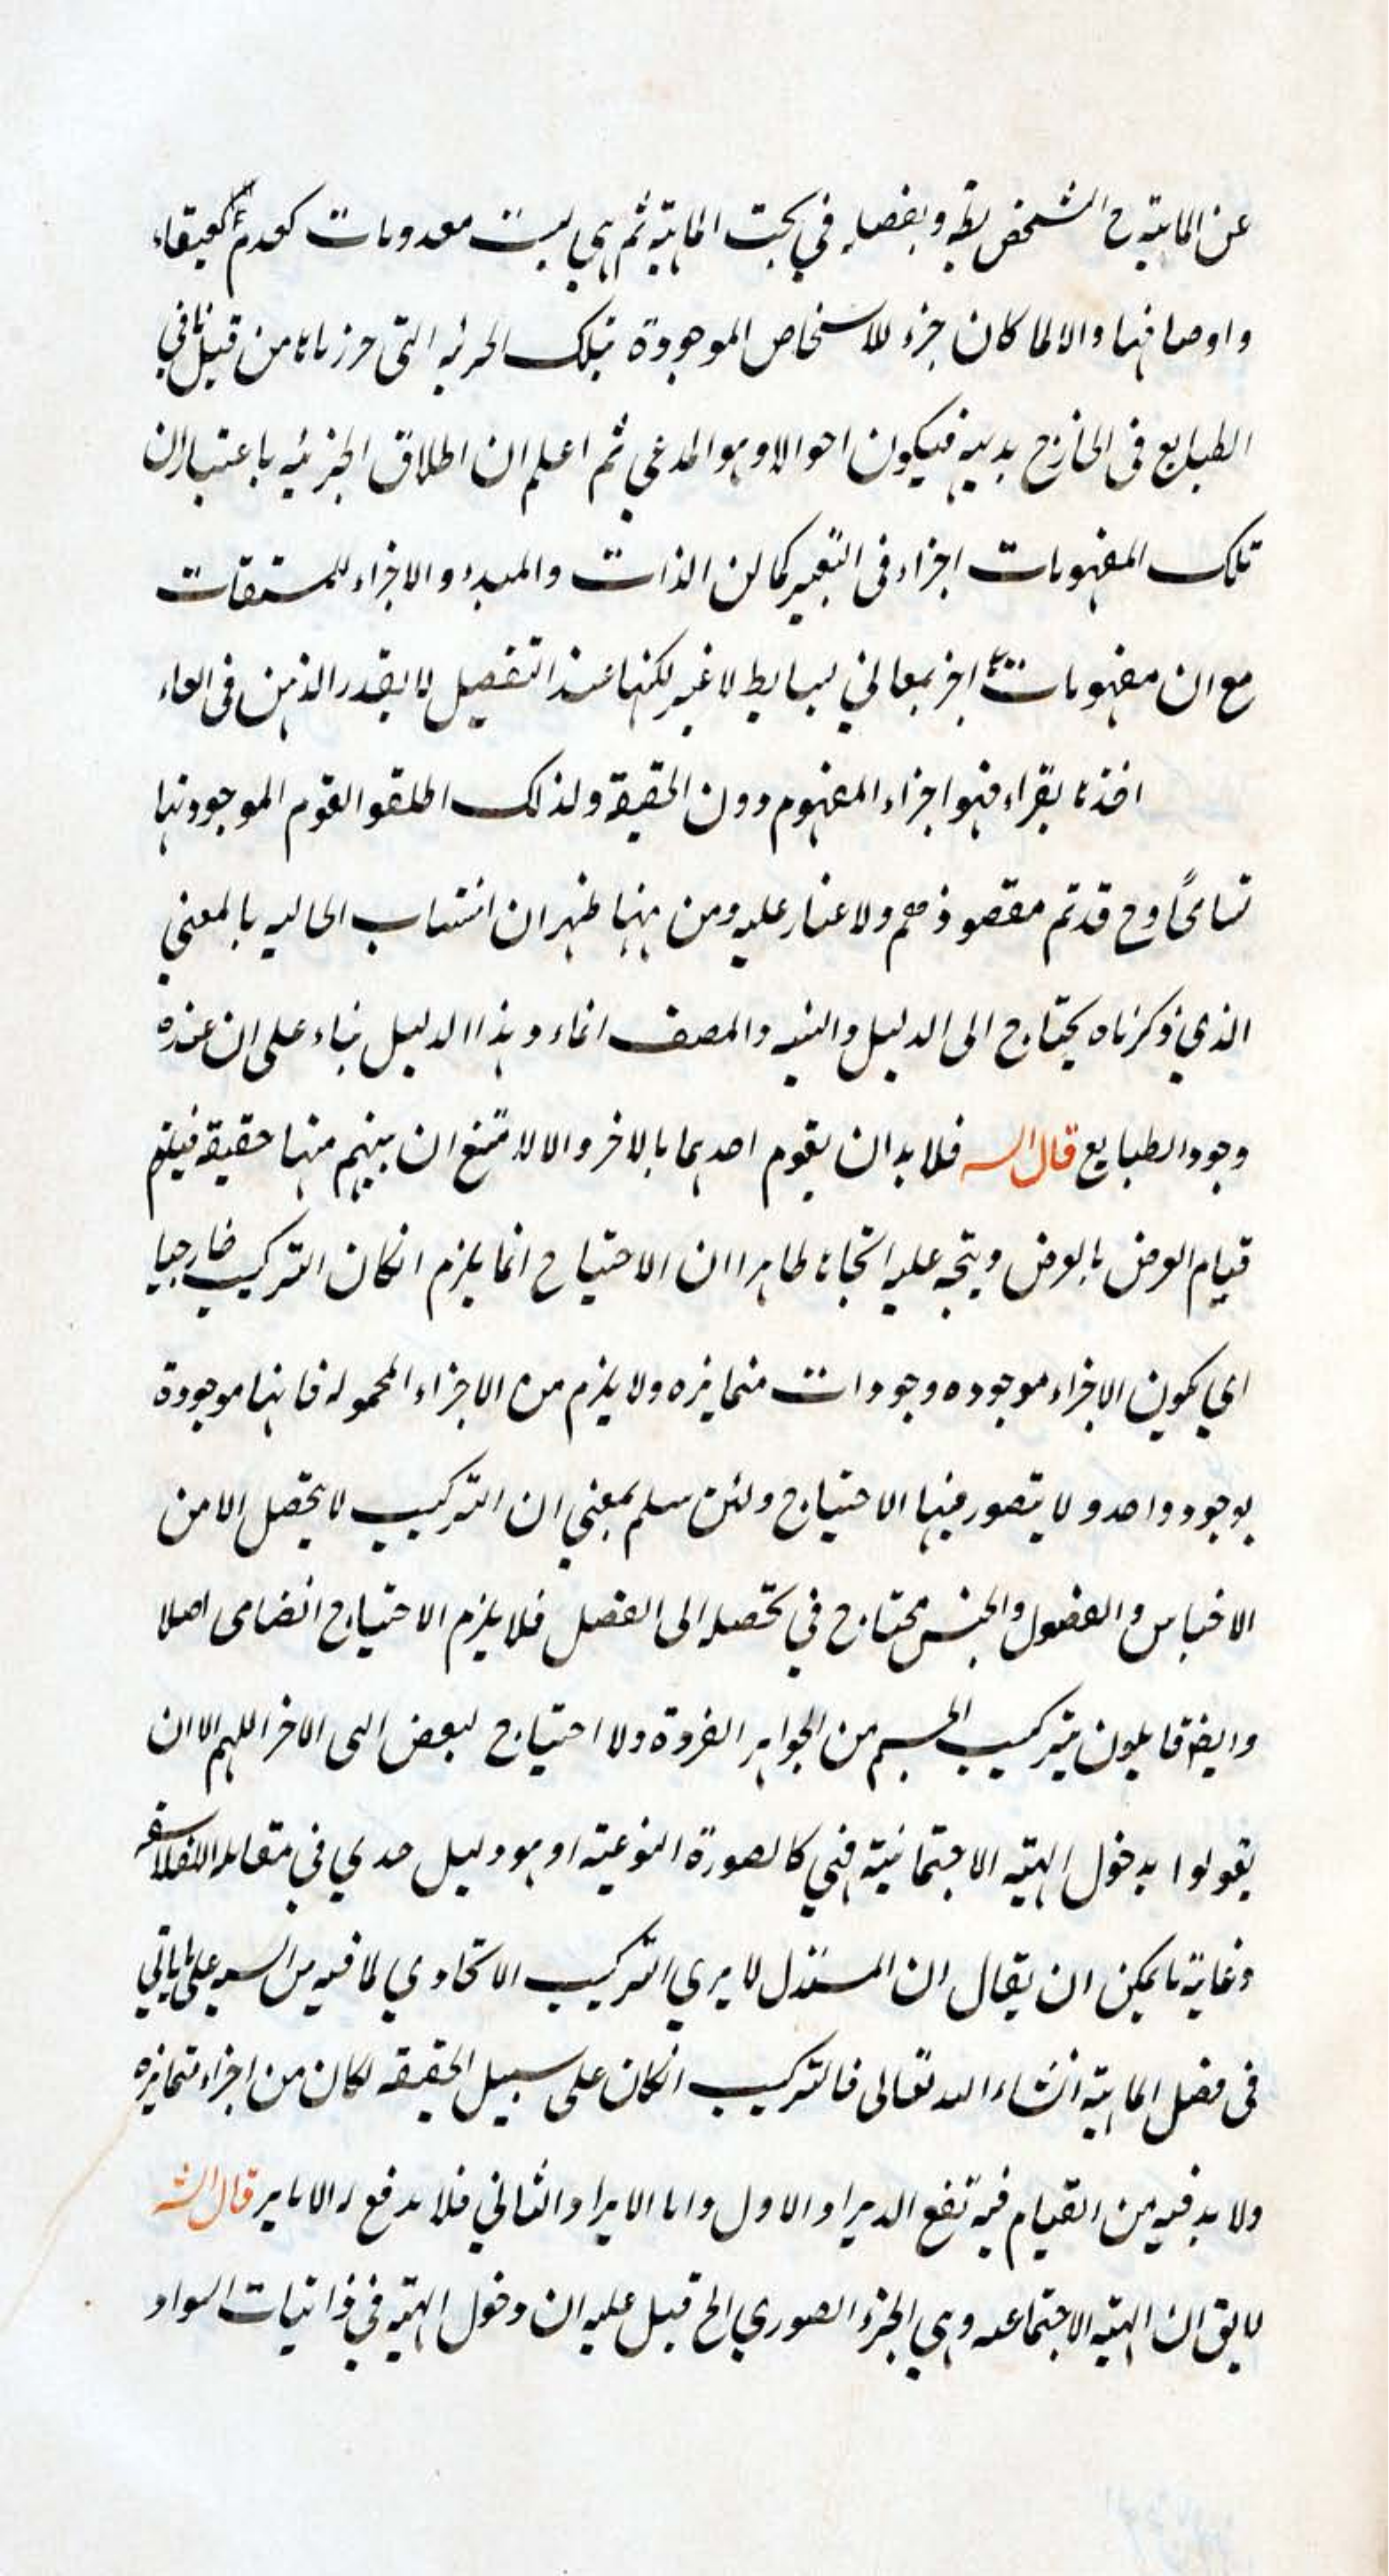 عن الماهية ح الشخص بط وبفصله في بحث الماهية ثم هي ليست معدومات كعدم كعنقاء
واوصافها والا لما كان جزء للاشخاص الموجودة بتلك الجزئيه التى حرزناها من قبل نافي
الطبايع فى الخارج بديهه فيكون احوالا وهو المدعي ثم اعلم ان اطلاق الجزئيه باعتبار ان
تلك المفهومات اجزاء فى التعبير كما ان الذات والمبدء والاجزاء للمشتقات
مع ان مفهومات اخر بمعاني بسايط لا غير لكنها عند التفصيل لا يقدر الذهن فى
اخذنا بقراء فهو اجزاء المفهوم دون الحقيقة ولذلك اطلقو القوم الموجود نها
تسامحًا وح قد تم مقصوذهم ولا غبار عليه ومن ههنا ظهر ان انتساب الحاليه بالمعنى
الذي ذكرناه يحتاج الى الدليل والتنبيه والمصنف انماء و هذا الدليل بناء على ان عنده
وجود الطبايع قال الس فلا بد ان يقوم احدهما بالاخر والا لامتنع ان يبتهم منها حقيقة فيلزم
قيام العرض بالعرض ويتجه عليه اتجاها ظاهرا ان الاحتياج انما يلزم انكان التركيب خارجيا
اي يكون الاجزاء موجوده وجودات متمايزه ولا يلزم من الاجزاء المحموله فانها موجودة
بوجود واحد و لا يتصور فيها الاحتياج ولئن سلم بمعني ان التركيب لا يحصل الا من
الاجناس والفصول والجنس محتاج في تحصله الى الفصل فلا يلزم الاحتياج انضمامى اصلا
وايضا قايلون بتركيب الجسم من الجواهر الفردة ولا احتياج لبعض الى الاخر اللهم الا ان
يقولوا بدخول الهيئه الاجتماعية فهي كالصورة النوعية او هو دليل جدلي في مقابله الفلاسفه
وغاية ما يمكن ان يقال ان المستدل لا يرى التركيب الاتحادي لما فيه من على ما ياتي
فى فصل الماهية انشاء الله تعالى فالتركيب انكان على سبيل الحقيقه لكان من اجزاء متمايزه
ولا بد فيه من القيام فيه تفع الايراد الاول واما الايراد الثاني فلا يدفع له الا بامر قال الش
لا يق ان الهيئه الاجتماعيه وهي الجزء الصوري الخ قيل عليه ان دخول الهيئه في ذاتيات السواد